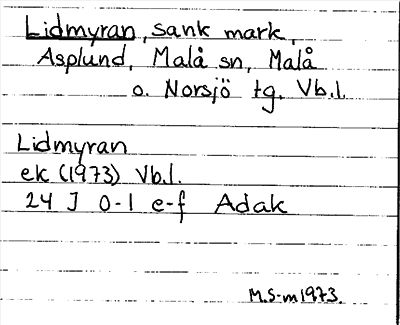 Lidmyran, sank mark,
Asplund, Malå sn, Malå
o. Norsjö tg. Vb.l.
Lidmyran
ek (1973) Vb.l.
24 J 0-1 e-f Adak
M.S-m 1973.